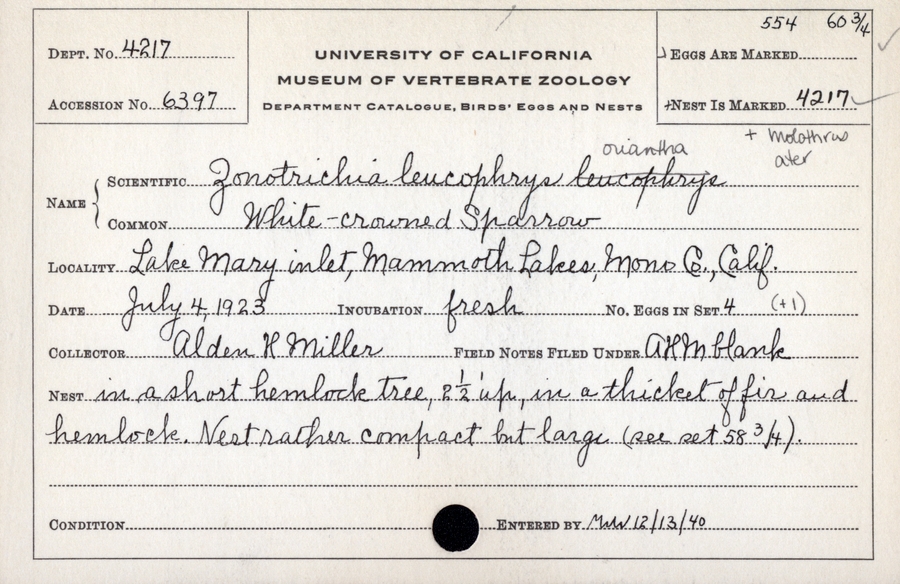 554 60 3/4
DEPT. NO. 4217
UNIVERSITY OF CALIFORNIA
EGGS ARE MARKED
MUSEUM OF VERTEBRATE ZOOLOGY
ACCESSION NO. 6397
DEPARTMENT CATALOGUE, BIRDS' EGGS AND NESTS
+NEST IS MARKED 4217
+ Molothrus
ater
oriantha
NAME
SCIENTIFIC Zonotrichia leucophrys leucophrys
COMMON White-crowned Sparrow
LOCALITY Lake Mary inlet, Mammoth Lakes, Mono Co., Calif.
DATE July 4, 1923 INCUBATION fresh NO. EGGS IN SET 4 (+1)
COLLECTOR Alden H Miller FIELD NOTES FILED UNDER AHM blank
NEST in a short hemlock tree, 2 1/2' up, in a thicket of fir and
hemlock. Nest rather compact but large (see set 58 3/4).
CONDITION ENTERED BY 12/13/40